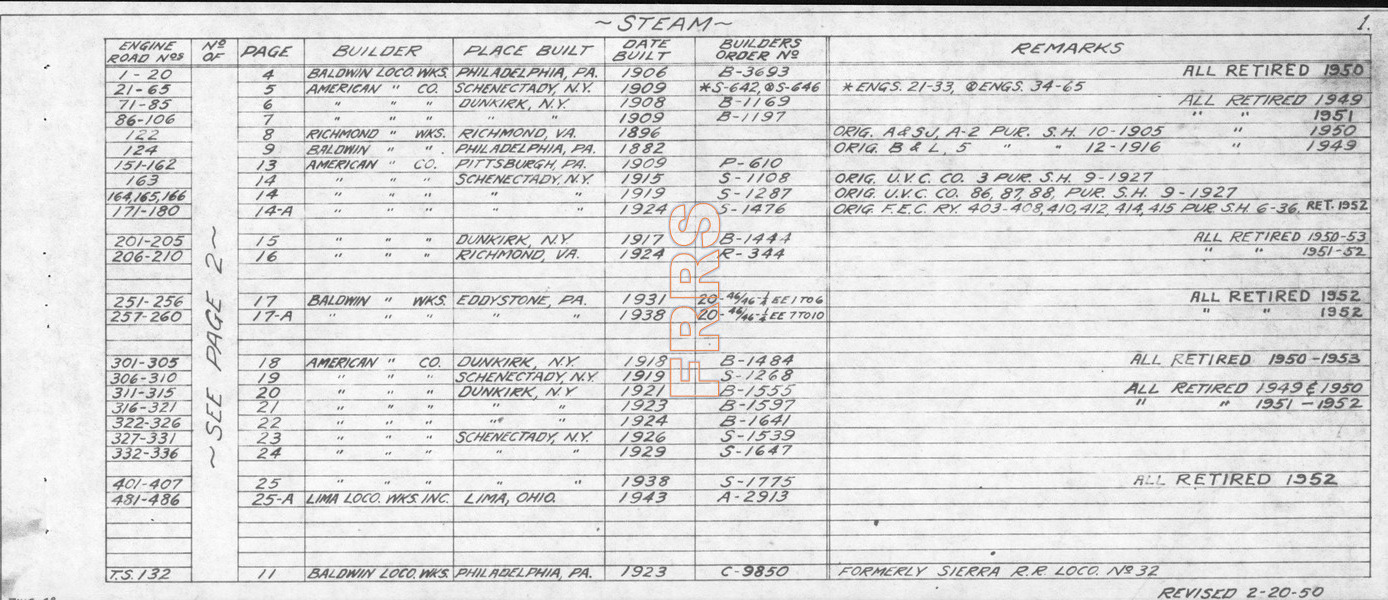 ~ STEAM ~ 1.
ENGINE ROAD Nos Nº OF PAGE BUILDER PLACE BUILT DATE BUILT BUILDERS ORDER Nº REMARKS
1-20 4 BALDWIN LOCO. WKS. PHILADELPHIA, PA. 1906 B-3693 ALL RETIRED 1950
21-65 5 AMERICAN " CO. SCHENECTADY, N.Y. 1909 *S-642, ⊗S-646 *ENGS. 21-33, ⊗ENGS. 34-65
71-85 6 " " " DUNKIRK, N.Y. 1908 B-1169 ALL RETIRED 1949
86-106 7 " " " " " 1909 B-1197 " " 1951
122 8 RICHMOND " WKS. RICHMOND, VA. 1896 ORIG. A & SJ, A-2 PUR. S.H. 10-1905 " 1950
124 9 BALDWIN " " . PHILADELPHIA, PA. 1882 ORIG. B & L, 5 " " 12-1916 " 1949
151-162 13 AMERICAN " CO. PITTSBURGH, PA. 1909 P-610
163 14 " " " SCHENECTADY, N.Y. 1915 S-1108 ORIG. U.V.C. CO. 3 PUR. S.H. 9-1927
164,165,166 14 " " " " " 1919 S-1287 ORIG. U.V.C. CO. 86, 87, 88, PUR. S.H. 9-1927
171-180 14-A " " " " " 1924 S-1476 ORIG. F.E.C. RY. 403-408, 410, 412, 414, 415 PUR. S.H. 6-36. RET. 1952
201-205 15 " " " DUNKIRK, N.Y 1917 B-1444 ALL RETIRED 1950-53
206-210 16 " " " RICHMOND, VA. 1924 R-344 " " 1951-52
251-256 17 BALDWIN " WKS. EDDYSTONE, PA. 1931 20-46/46-¼ EE 1 TO 6 ALL RETIRED 1952
257-260 17-A " " " " " 1938 20-46/46-¼ EE 7 TO 10 " " 1952
301-305 18 AMERICAN " CO. DUNKIRK, N.Y. 1918 B-1484 ALL RETIRED 1950-1953
306-310 19 " " " SCHENECTADY, N.Y. 1919 S-1268
311-315 20 " " " DUNKIRK, N.Y 1921 B-1555 ALL RETIRED 1949 & 1950
316-321 21 " " " " " 1923 B-1597 " " 1951-1952
322-326 22 " " " " " 1924 B-1641
327-331 23 " " " SCHENECTADY, N.Y. 1926 S-1539
332-336 24 " " " " " 1929 S-1647
401-407 25 " " " " " 1938 S-1775 ALL RETIRED 1952
481-486 25-A LIMA LOCO. WKS. INC. LIMA, OHIO. 1943 A-2913
T.S. 132 11 BALDWIN LOCO. WKS. PHILADELPHIA, PA. 1923 C-9850 FORMERLY SIERRA R.R. LOCO. Nº 32
~ SEE PAGE 2 ~
FRRS
REVISED 2-20-50